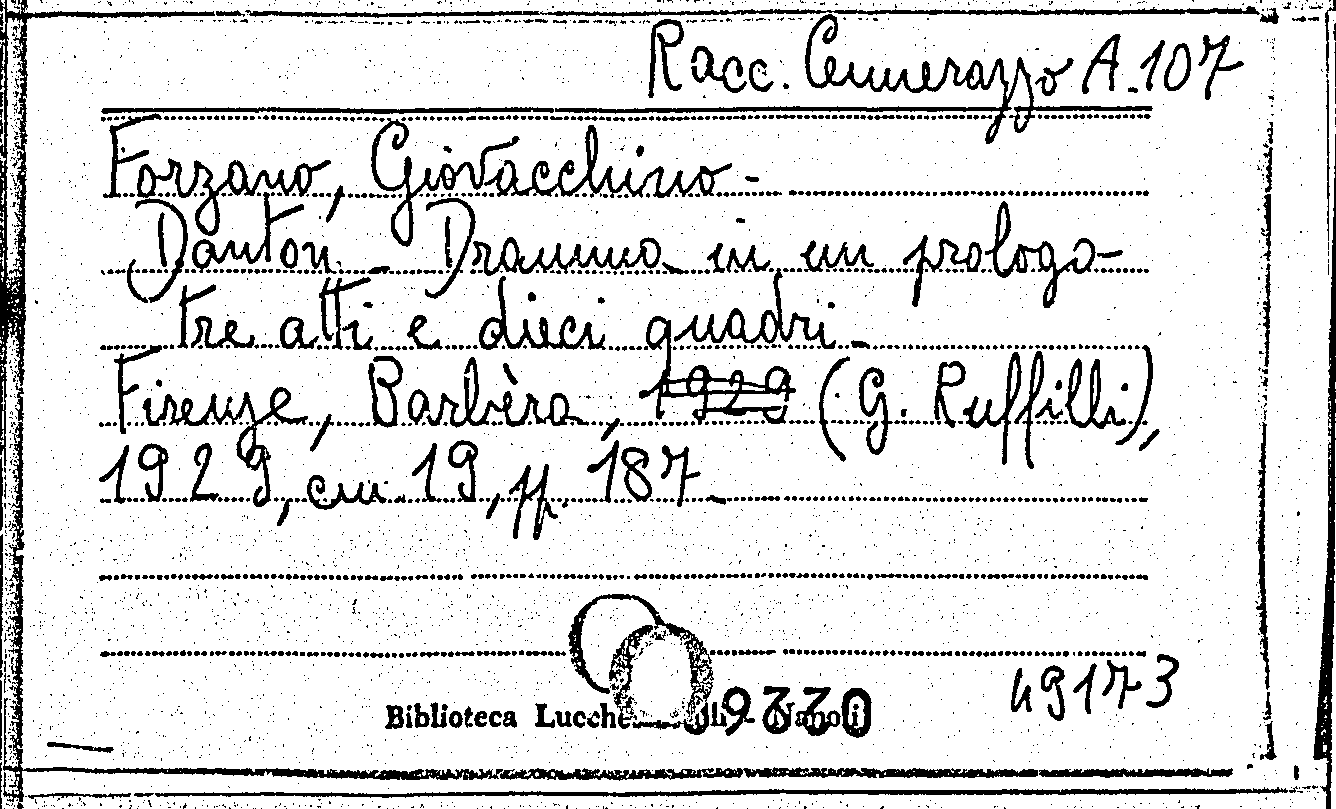 Racc. Cennerazzo A. 107
Forzano, Giovacchino -
Danton - Dramma in un prologo
tre atti e dieci quadri -
Firenze, Barbèra, 1929 (G. Ruffilli),
1929, cm. 19, pp. 187 -
49173
Biblioteca Lucche 9330